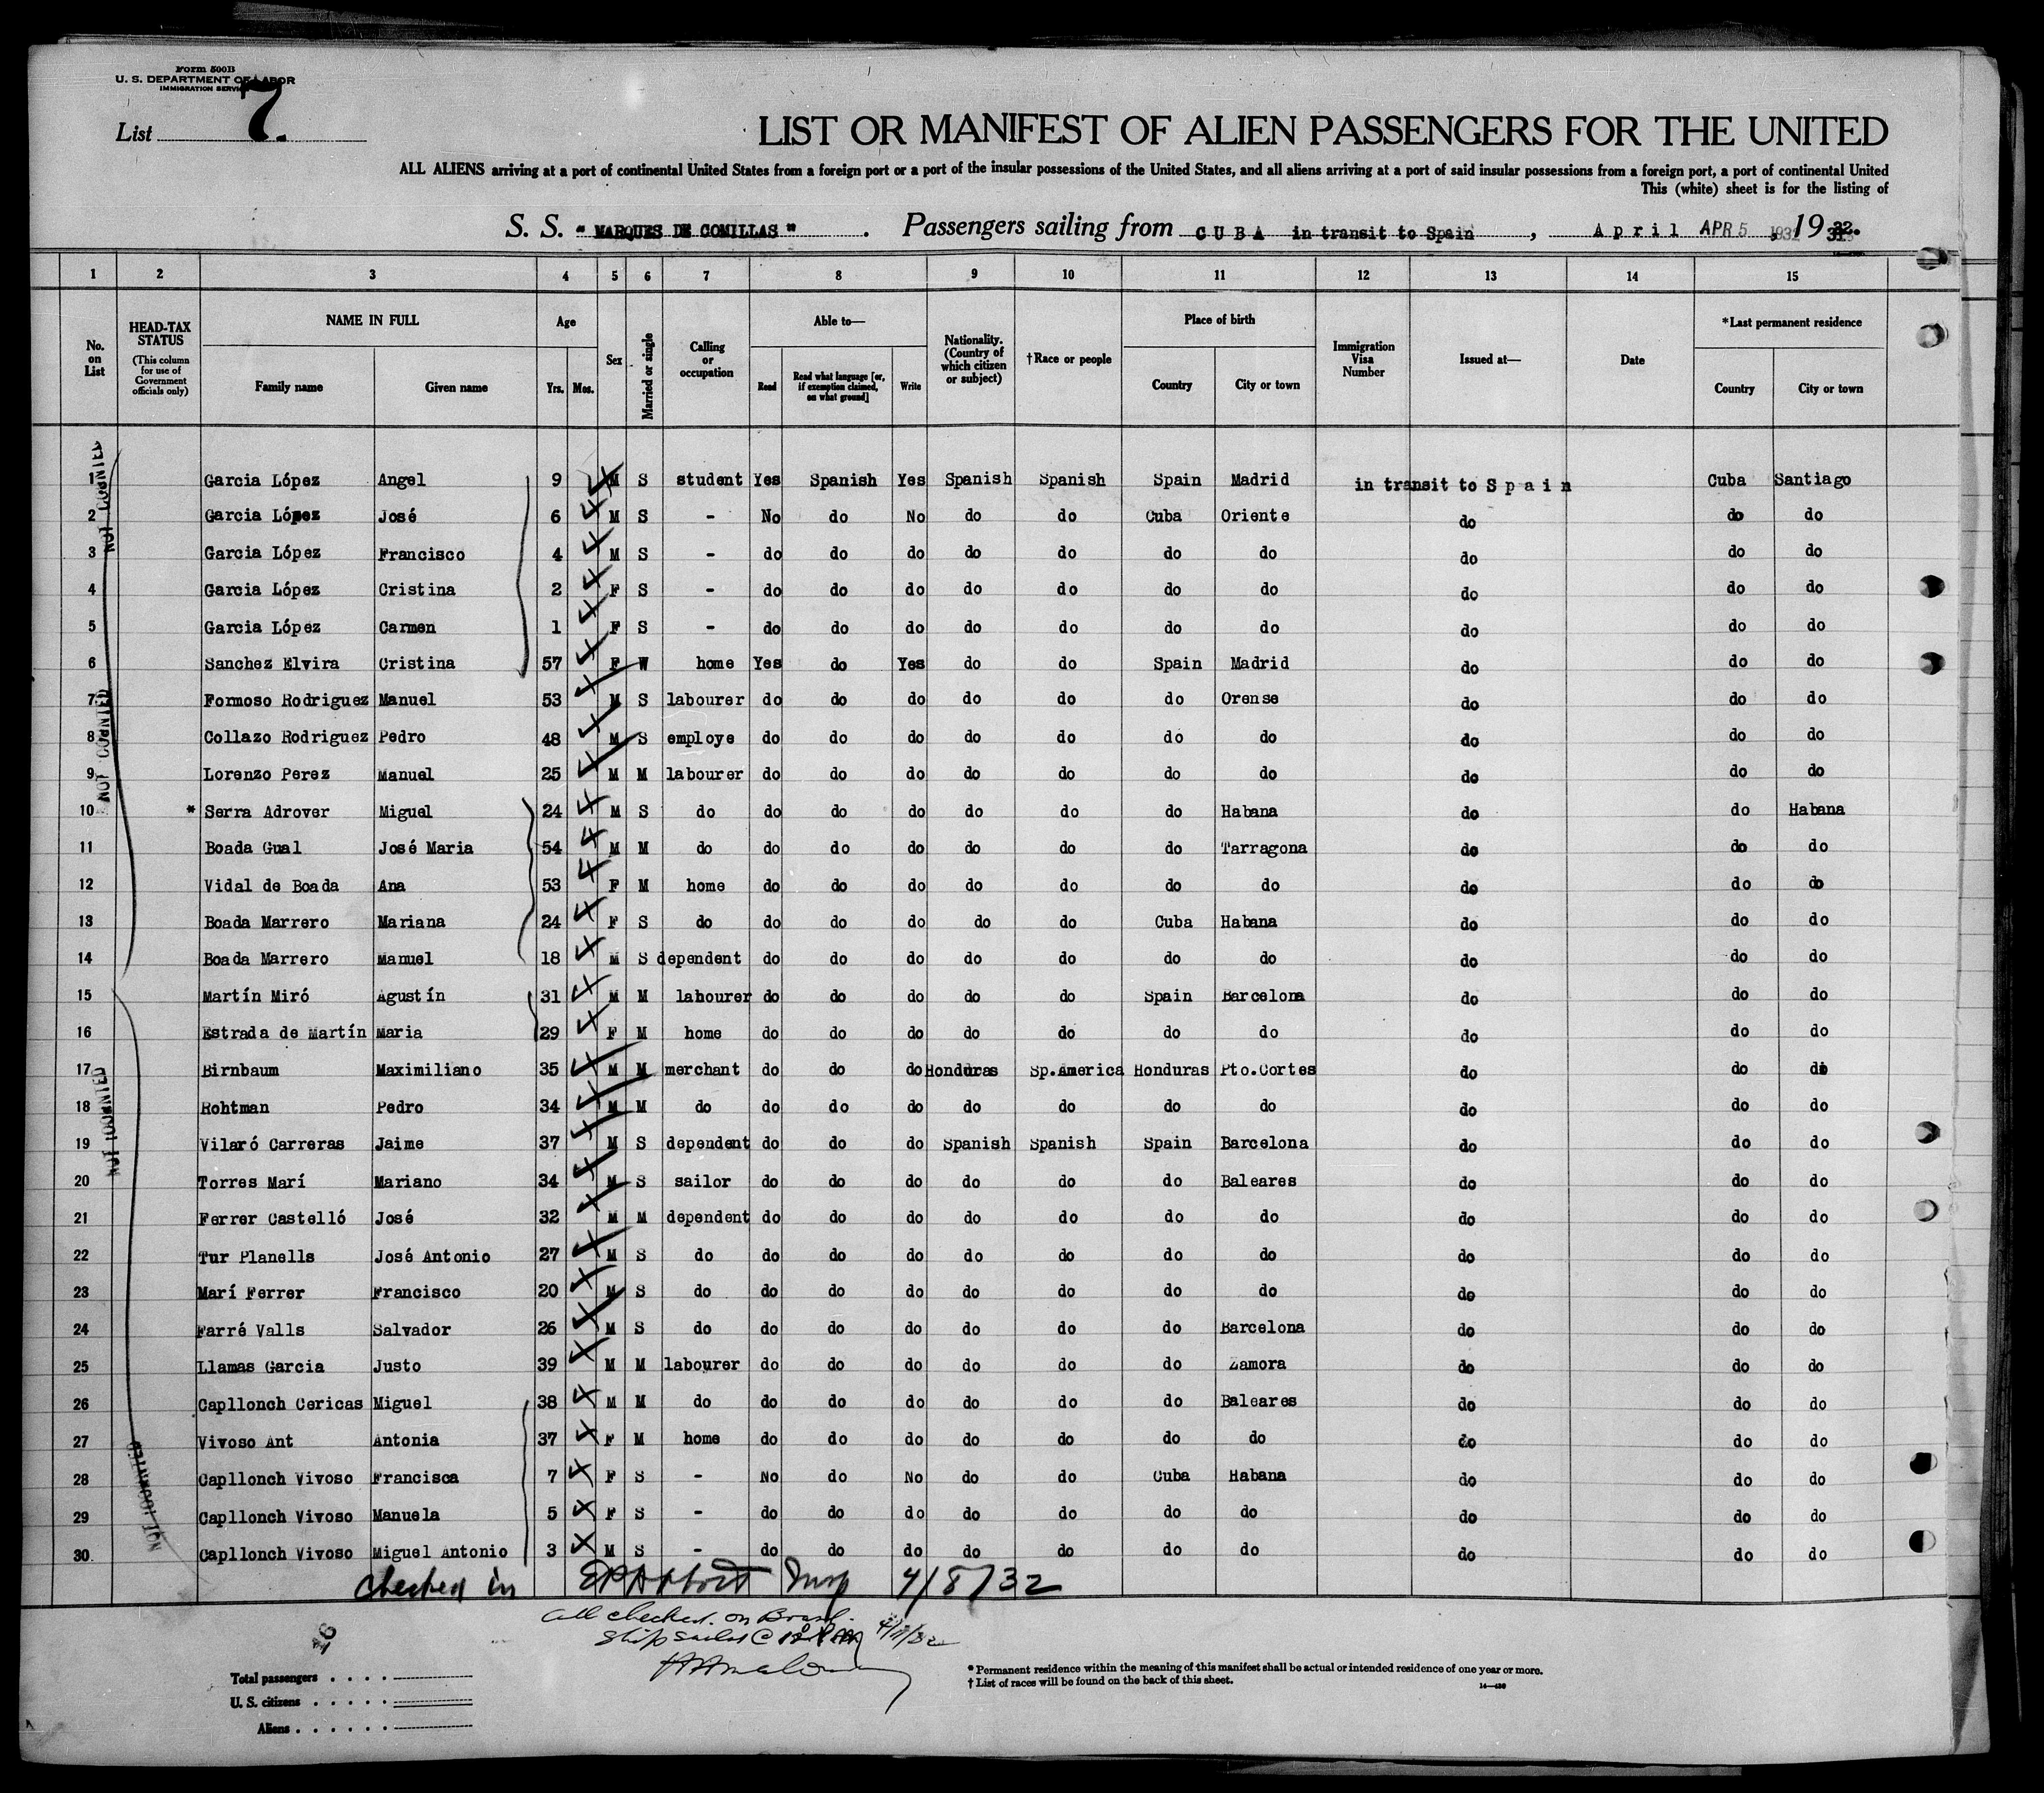 Form 500B
U. S. DEPARTMENT OF LABOR
IMMIGRATION SERVICE
List 7.
LIST OR MANIFEST OF ALIEN PASSENGERS FOR THE UNITED
ALL ALIENS arriving at a port of continental United States from a foreign port or a port of the insular possessions of the United States, and all aliens arriving at a port of said insular possessions from a foreign port, a port of continental United
This (white) sheet is for the listing of
S. S. "MARQUES DE COMILLAS". Passengers sailing from CUBA in transit to Spain, April APR 5 1932, 1932.
1 2 3 4 5 6 7 8 9 10 11 12 13 14 15
No. on List HEAD-TAX STATUS (This column for use of Government officials only) NAME IN FULL Family name Given name Age Yrs. Mos. Sex Married or single Calling or occupation Able to— Read Read what language [or, if exemption claimed, on what ground] Write Nationality. (Country of which citizen or subject) †Race or people Place of birth Country City or town Immigration Visa Number Issued at— Date *Last permanent residence Country City or town
1 Garcia López Angel 9 M S student Yes Spanish Yes Spanish Spanish Spain Madrid in transit to Spain Cuba Santiago
2 Garcia López José 6 M S - No do No do do Cuba Oriente do do do
3 Garcia López Francisco 4 M S - do do do do do do do do do do
4 Garcia López Cristina 2 F S - do do do do do do do do do do
5 Garcia López Carmen 1 F S - do do do do do do do do do do
6 Sanchez Elvira Cristina 57 F W home Yes do Yes do do Spain Madrid do do do
7 Formoso Rodriguez Manuel 53 M S labourer do do do do do do Orense do do do
8 Collazo Rodriguez Pedro 48 M S employe do do do do do do do do do do
9 Lorenzo Perez Manuel 25 M M labourer do do do do do do do do do do
10 * Serra Adrover Miguel 24 M S do do do do do do do Habana do do Habana
11 Boada Gual José Maria 54 M M do do do do do do do Tarragona do do do
12 Vidal de Boada Ana 53 F M home do do do do do do do do do do
13 Boada Marrero Mariana 24 F S do do do do do do Cuba Habana do do do
14 Boada Marrero Manuel 18 M S dependent do do do do do do do do do do
15 Martín Miró Agustín 31 M M labourer do do do do do Spain Barcelona do do do
16 Estrada de Martín Maria 29 F M home do do do do do do do do do do
17 Birnbaum Maximiliano 35 M M merchant do do do Honduras Sp.America Honduras Pto.Cortes do do do
18 Rohtman Pedro 34 M M do do do do do do do do do do do
19 Vilaró Carreras Jaime 37 M S dependent do do do Spanish Spanish Spain Barcelona do do do
20 Torres Marí Mariano 34 M S sailor do do do do do do Baleares do do do
21 Ferrer Castelló José 32 M M dependent do do do do do do do do do do
22 Tur Planells José Antonio 27 M S do do do do do do do do do do do
23 Marí Ferrer Francisco 20 M S do do do do do do do do do do do
24 Farré Valls Salvador 26 M S do do do do do do do Barcelona do do do
25 Llamas Garcia Justo 39 M M labourer do do do do do do Zamora do do do
26 Capllonch Cericas Miguel 38 M M do do do do do do do Baleares do do do
27 Vivoso Ant Antonia 37 F M home do do do do do do do do do do
28 Capllonch Vivoso Francisca 7 F S - No do No do do Cuba Habana do do do
29 Capllonch Vivoso Manuela 5 F S - do do do do do do do do do do
30. Capllonch Vivoso Miguel Antonio 3 M S - do do do do do do do do do do
NOT COUNTED
NOT COUNTED
NOT COUNTED
NOT COUNTED
Checked in Insp 4/8/32
all checked on Board.
Ship sailed @ 4/11/32
Total passengers
U. S. citizens
Aliens
* Permanent residence within the meaning of this manifest shall be actual or intended residence of one year or more.
† List of races will be found on the back of this sheet.